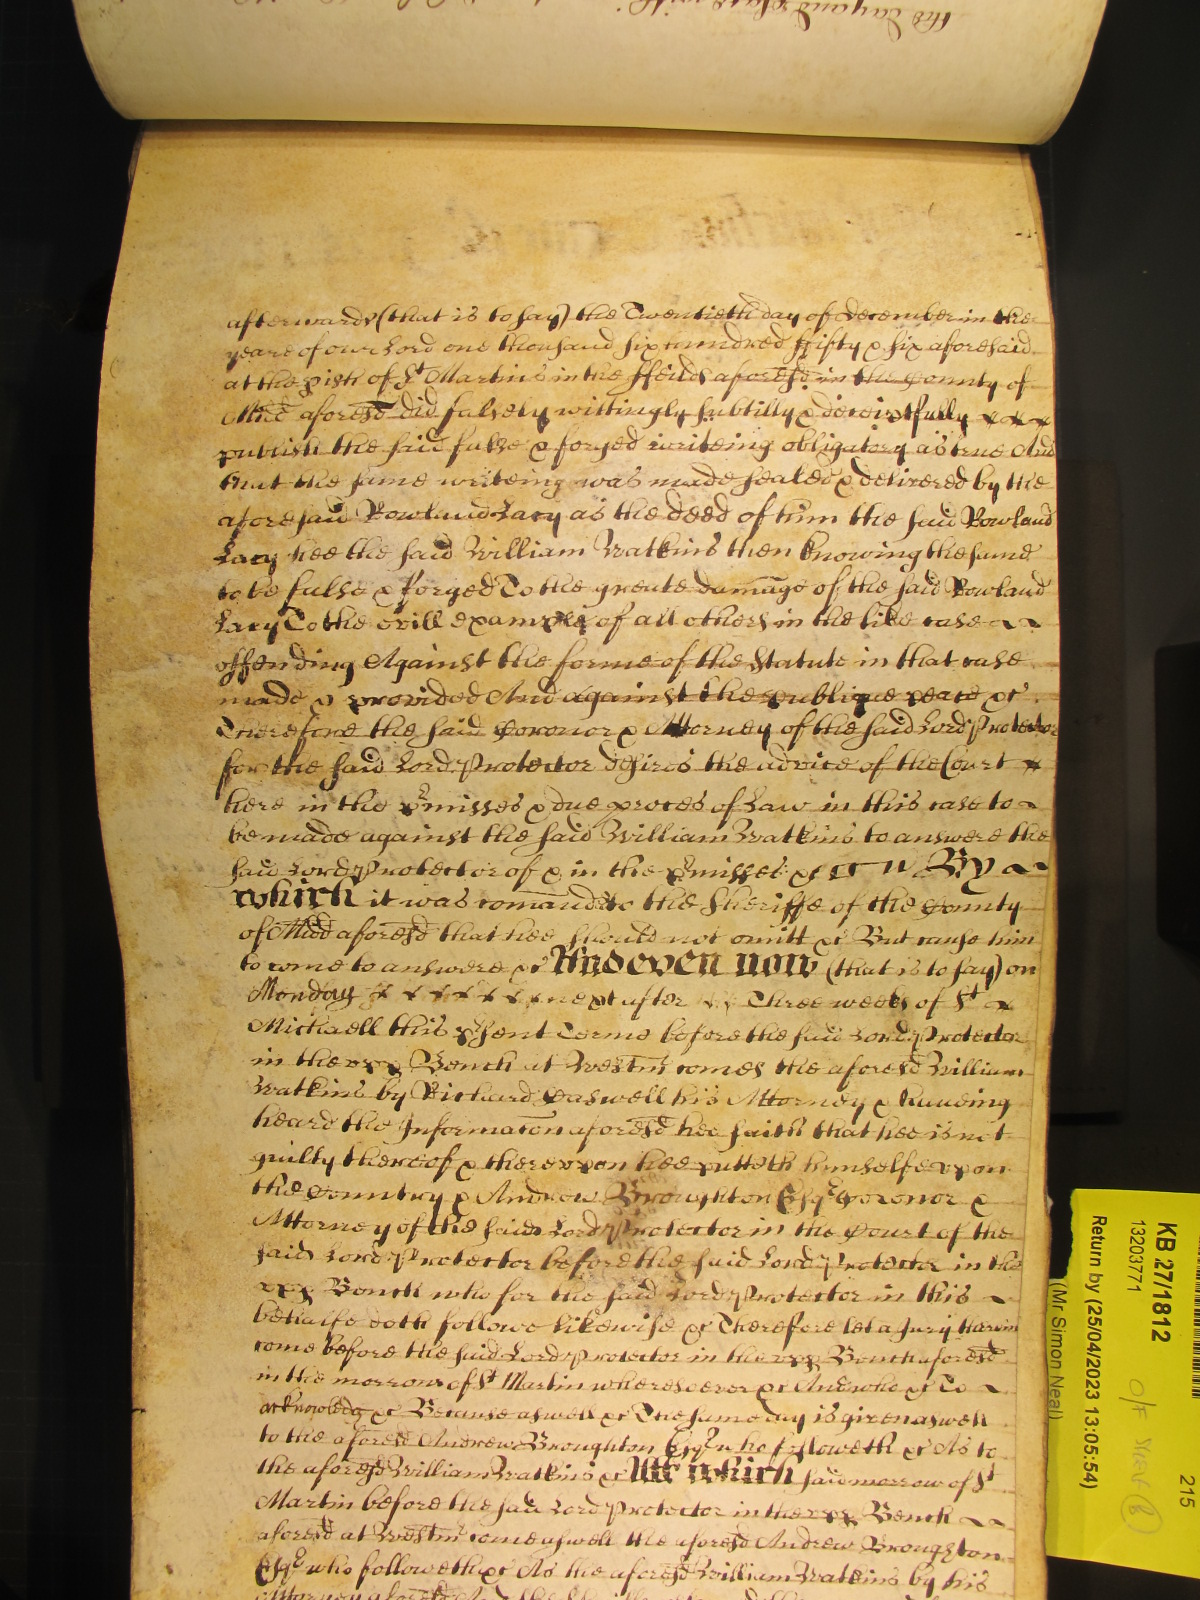 afterwards (that is to say) the Twentieth day of december in the
yeare of our Lord one thousand six hundred fifty & six aforesaid
at the pish of St Martins in the ffeilds aforesd in the County of
Midd aforesd did falsely wittingly subtilly & deceiptfully
publish the said false & forged writeing obligatory as true And
that the same writeing was made sealed & delivered by the
aforesaid Rowland Lacy as the deed of him the said Rowland
Lacy hee the said William Watkins then knowing the same
to be false & forged To the greate damage of the said Rowland
Lacy To the evill example of all others in the like case
offending Against the forme of the Statute in that case
made & provided And against the publique peace &c
Therefore the said Coronor & Attorney of the said Lord Protector
for the said Lord Protector desires the advice of the Court
here in the pmisses & due proces of Law in this case to
be made against the said William Watkins to answere the
said Lord Protector of & in the pmisses &c By
which it was comanded to the Sheriffe of the County
of Midd aforesd that hee should not omitt &c But cause him
to come to answere &c And even now (that is to say) on
Monday next after Three weeks of St
Michaell this psent Terme before the said Lord Protector
in the upp Bench at Westm comes the aforesd William
Watkins by Richard Caswell his Attorney & haveing
heard the Informacon aforesd hee saith that hee is not
guilty thereof & thereupon hee putteth himselfe upon
the Country & Andrew Broughton Esqr Coronor &
Attorney of the said Lord Protector in the Court of the
said Lord Protector before the said Lord Protector in the
upp Bench who for the said Lord Protector in this
behalfe doth followe likewise &c Therefore let a Jury therein
come before the said Lord Protector in the upp Bench aforesd
in the morrow of St Martin wheresoever &c And who &c To
acknowledg &c Because aswell &c The same day is given aswell
to the aforesd Andrew Broughton Esqr who followeth &c As to
the aforesd William Watkins &c Att which said morrow of St
Martin before the said Lord Protector in the upp Bench
aforesd at Westm come aswell the aforesd Andrew Broughton
Esqr who followeth &c As the aforesd William Watkins by his
KB 27/1812
13203771
Return by (25/04/2023 13:05:54)
(Mr Simon Neal)
215